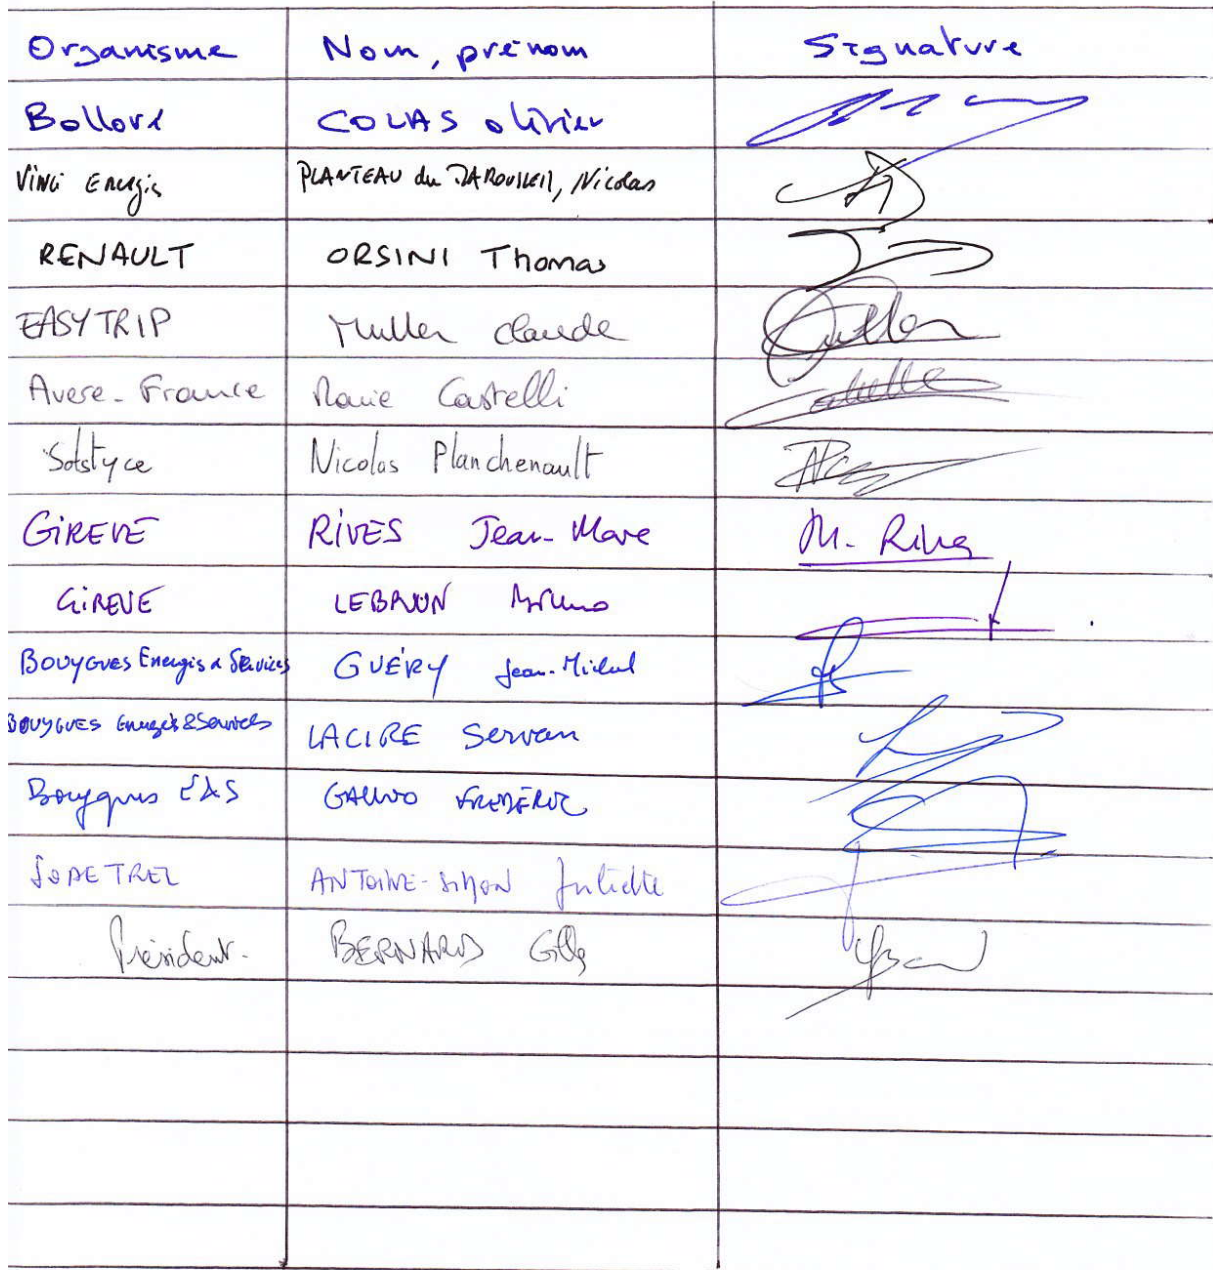 Organisme Nom, prénom Signature
Bolloré COLAS Olivier
Vinci Energies PLANTEAU du MAROUSSEM, Nicolas
RENAULT ORSINI Thomas
EASYTRIP Muller Claude
Avere-France Marie Castelli
Sobstyce Nicolas Planchenault
GIREVE RIVES Jean-Marc M. Rives
GIREVE LEBRUN Bruno
BOUYGUES Energies & Services GUÉRY Jean-Michel
BOUYGUES Energies & Services LACIRE Servan
Bouygues E&S FREDERIC
SODETREL ANTOINE-SIMON Juliette
Président. BERNARD Gilles